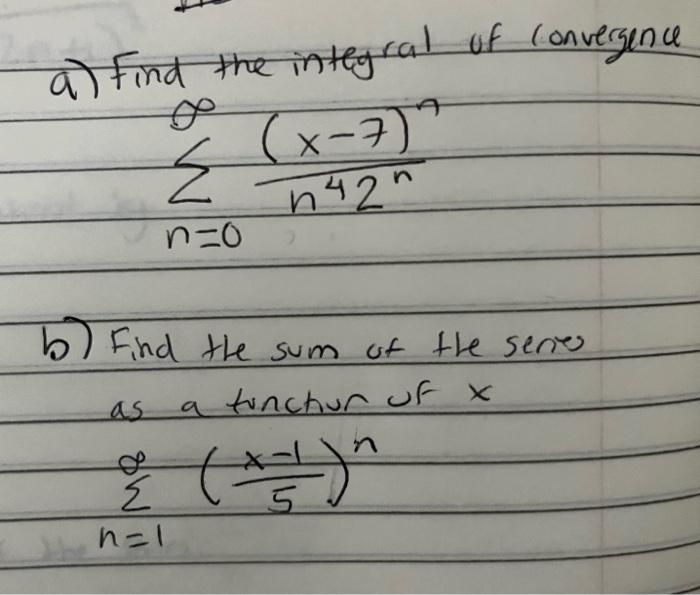 a) Find the integral of convergence
∞
Σ (x-7)^n / n^4 2^n
n=0
b) Find the sum of the series
as a function of x
∞
Σ ((x-1)/5)^n
n=1